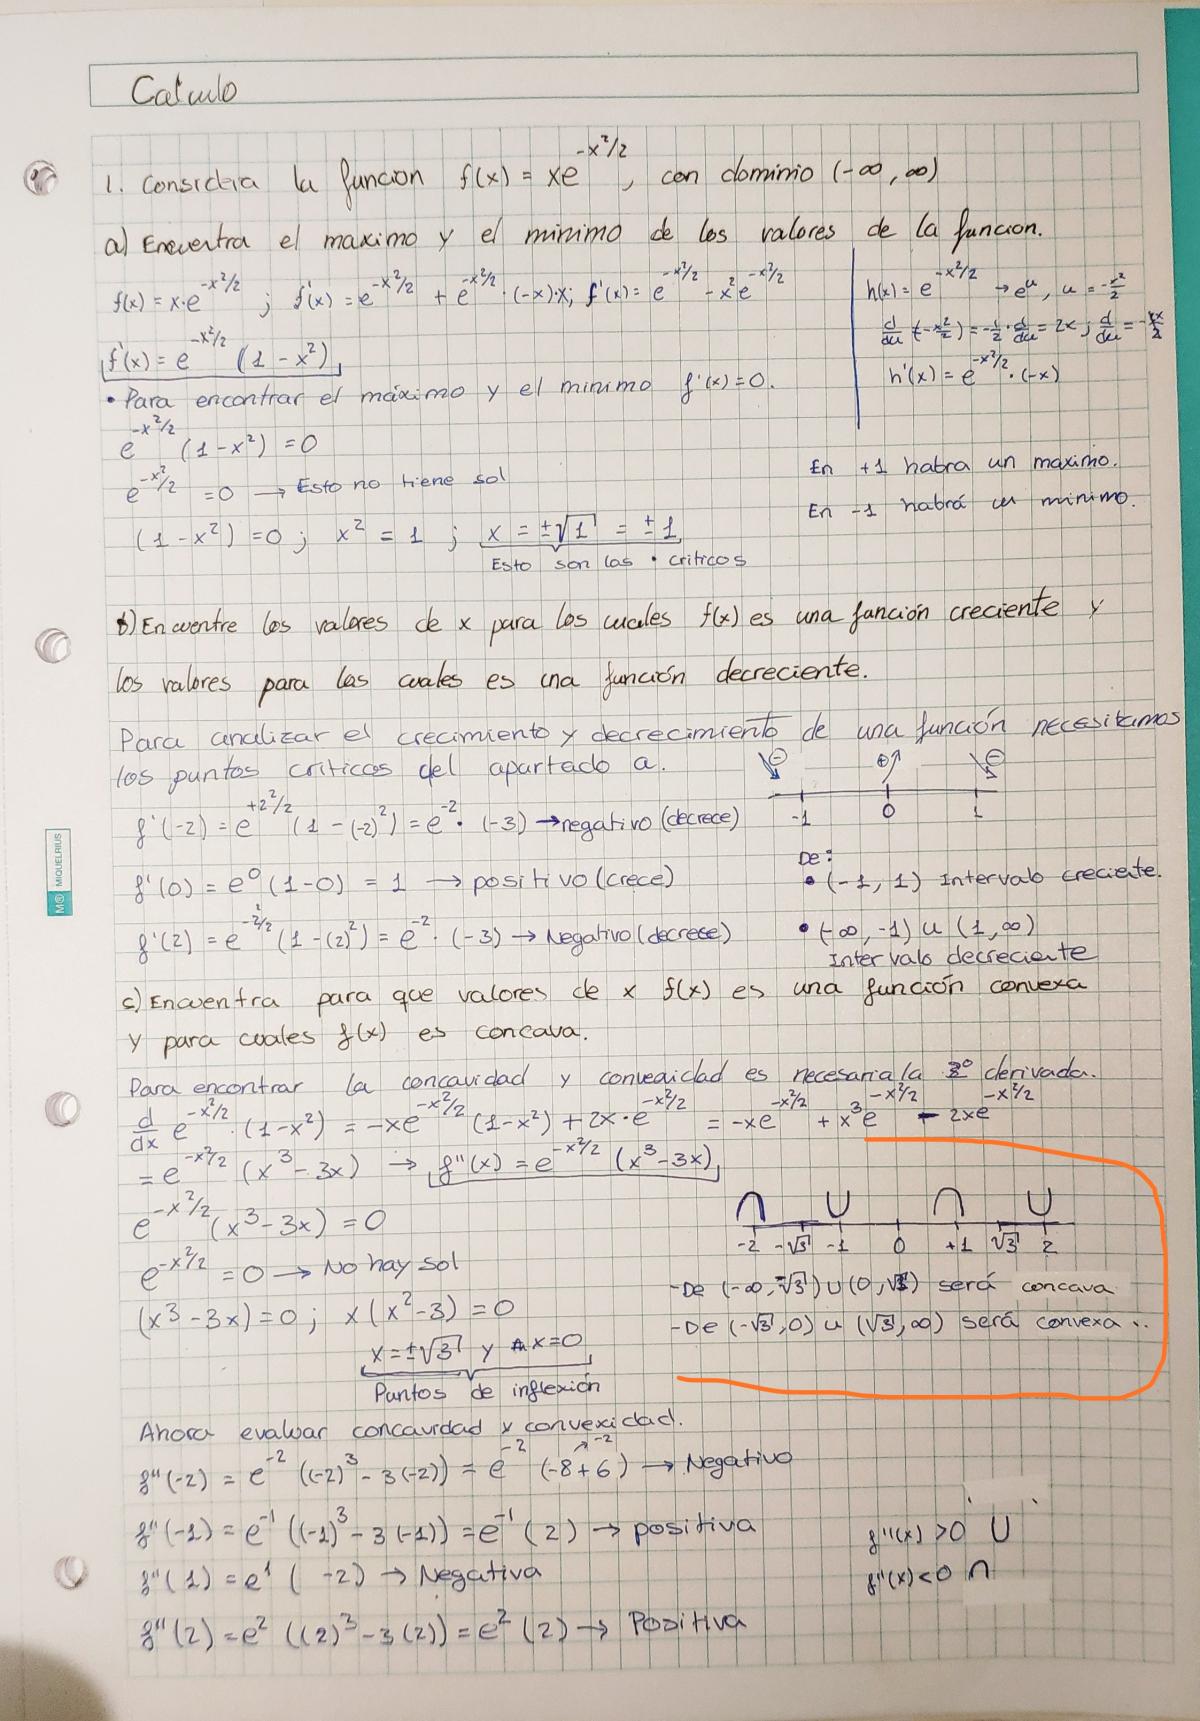 Calculo
1. Considera la funcion f(x) = xe^(-x²/2), con dominio (-∞, ∞)
a) Encuentra el maximo y el minimo de los valores de la funcion.
f(x) = x·e^(-x²/2) ; f'(x) = e^(-x²/2) + e^(-x²/2)·(-x)·x; f'(x) = e^(-x²/2) - x²e^(-x²/2)
f'(x) = e^(-x²/2) (1 - x²)
h(x) = e^(-x²/2) → e^u, u = -x²/2
h'(x) = e^(-x²/2)·(-x)
• Para encontrar el máximo y el minimo f'(x) = 0.
e^(-x²/2) (1-x²) = 0
e^(-x²/2) = 0 → Esto no tiene sol
(1-x²) = 0 ; x² = 1 ; x = ±√1 = ±1
Esto son los • criticos
En +1 habra un maximo.
En -1 habrá un minimo.
b) Encuentre los valores de x para los cuales f(x) es una función creciente y
los valores para las cuales es una función decreciente.
Para analizar el crecimiento y decrecimiento de una función necesitamos
los puntos criticos del apartado a.
⊖ ⊕ ⊖
-1 0 1
f'(-2) = e^(+2²/2) (1 - (-2)²) = e^-2 · (-3) → negativo (decrece)
f'(0) = e^0 (1-0) = 1 → positivo (crece)
f'(2) = e^(-2²/2) (1-(2)²) = e^-2 · (-3) → Negativo (decrese)
De:
• (-1, 1) Intervalo creciente.
• (-∞, -1) u (1, ∞)
Intervalo decreciente
c) Encuentra para que valores de x f(x) es una función convexa
y para cuales f(x) es concava.
Para encontrar la concavidad y convexidad es necesaria la 2º derivada.
d/dx e^(-x²/2) · (1-x²) = -xe^(-x²/2) (1-x²) + 2x·e^(-x²/2) = -xe^(-x²/2) + x³e^(-x²/2) - 2xe^(-x²/2)
= e^(-x²/2) (x³-3x) → f''(x) = e^(-x²/2) (x³-3x)
e^(-x²/2) (x³-3x) = 0
e^(-x²/2) = 0 → No hay sol
(x³-3x) = 0 ; x(x²-3) = 0
x = ±√3 y x = 0
Puntos de inflexión
∩ ∪ ∩ ∪
-2 -√3 -1 0 +1 √3 2
-De (-∞, -√3) U (0, √3) será concava
-De (-√3, 0) u (√3, ∞) será convexa
Ahora evaluar concavidad y convexidad.
f''(-2) = e^-2 ((-2)³ - 3(-2)) = e^-2 (-8+6) → Negativo
-2
f''(-1) = e^-1 ((-1)³ - 3(-1)) = e^-1 (2) → positiva
f''(1) = e^1 ( -2) → Negativa
f''(2) = e^2 ((2)³ - 3(2)) = e^2 (2) → Positiva
f''(x) > 0 ∪
f''(x) < 0 ∩
MIQUELRIUS